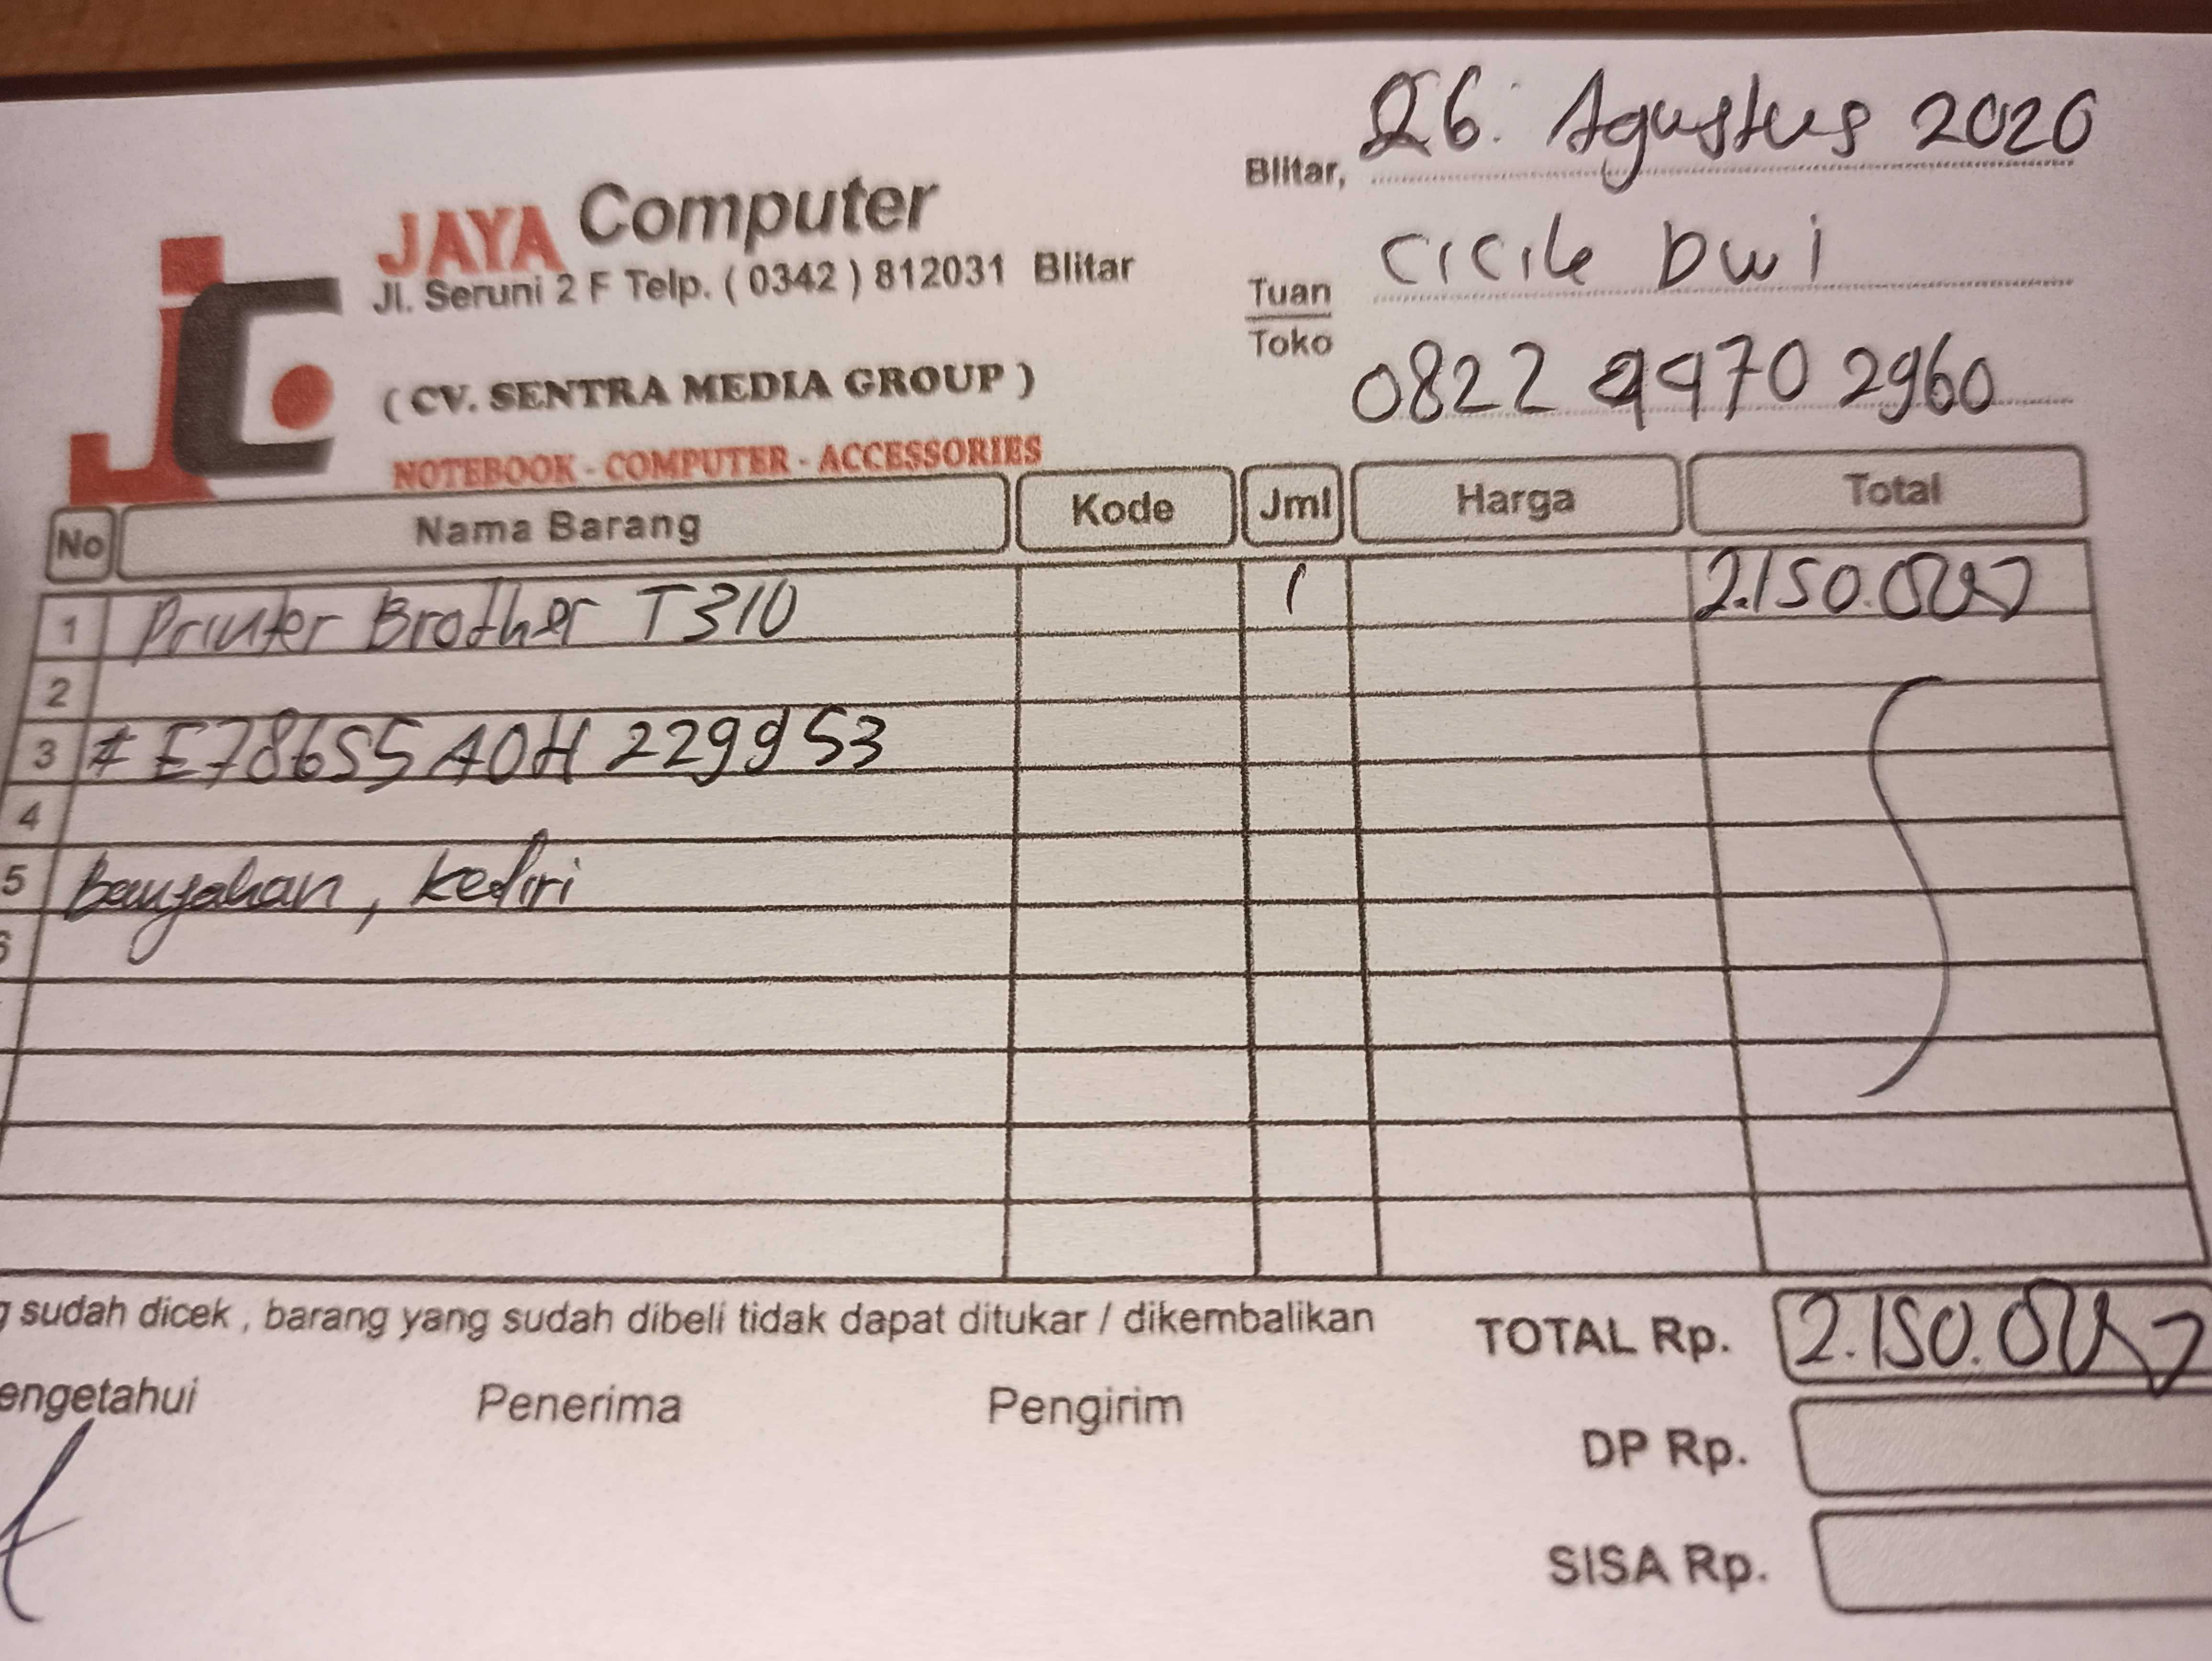 Blitar, 26. Agustus 2020
JAYA Computer
Jl. Seruni 2 F Telp. ( 0342 ) 812031 Blitar
Tuan Cicile Dwi
Toko
0822 9970 2960
( CV. SENTRA MEDIA GROUP )
NOTEBOOK - COMPUTER - ACCESSORIES
No Nama Barang Kode Jml Harga Total
1 Printer Brother T310 1 2.150.000
2
3 # E78655A0H229953
4
5 Banjahan, Kediri
6
sudah dicek , barang yang sudah dibeli tidak dapat ditukar / dikembalikan
TOTAL Rp. 2.150.000
engetahui Penerima Pengirim
DP Rp.
SISA Rp.